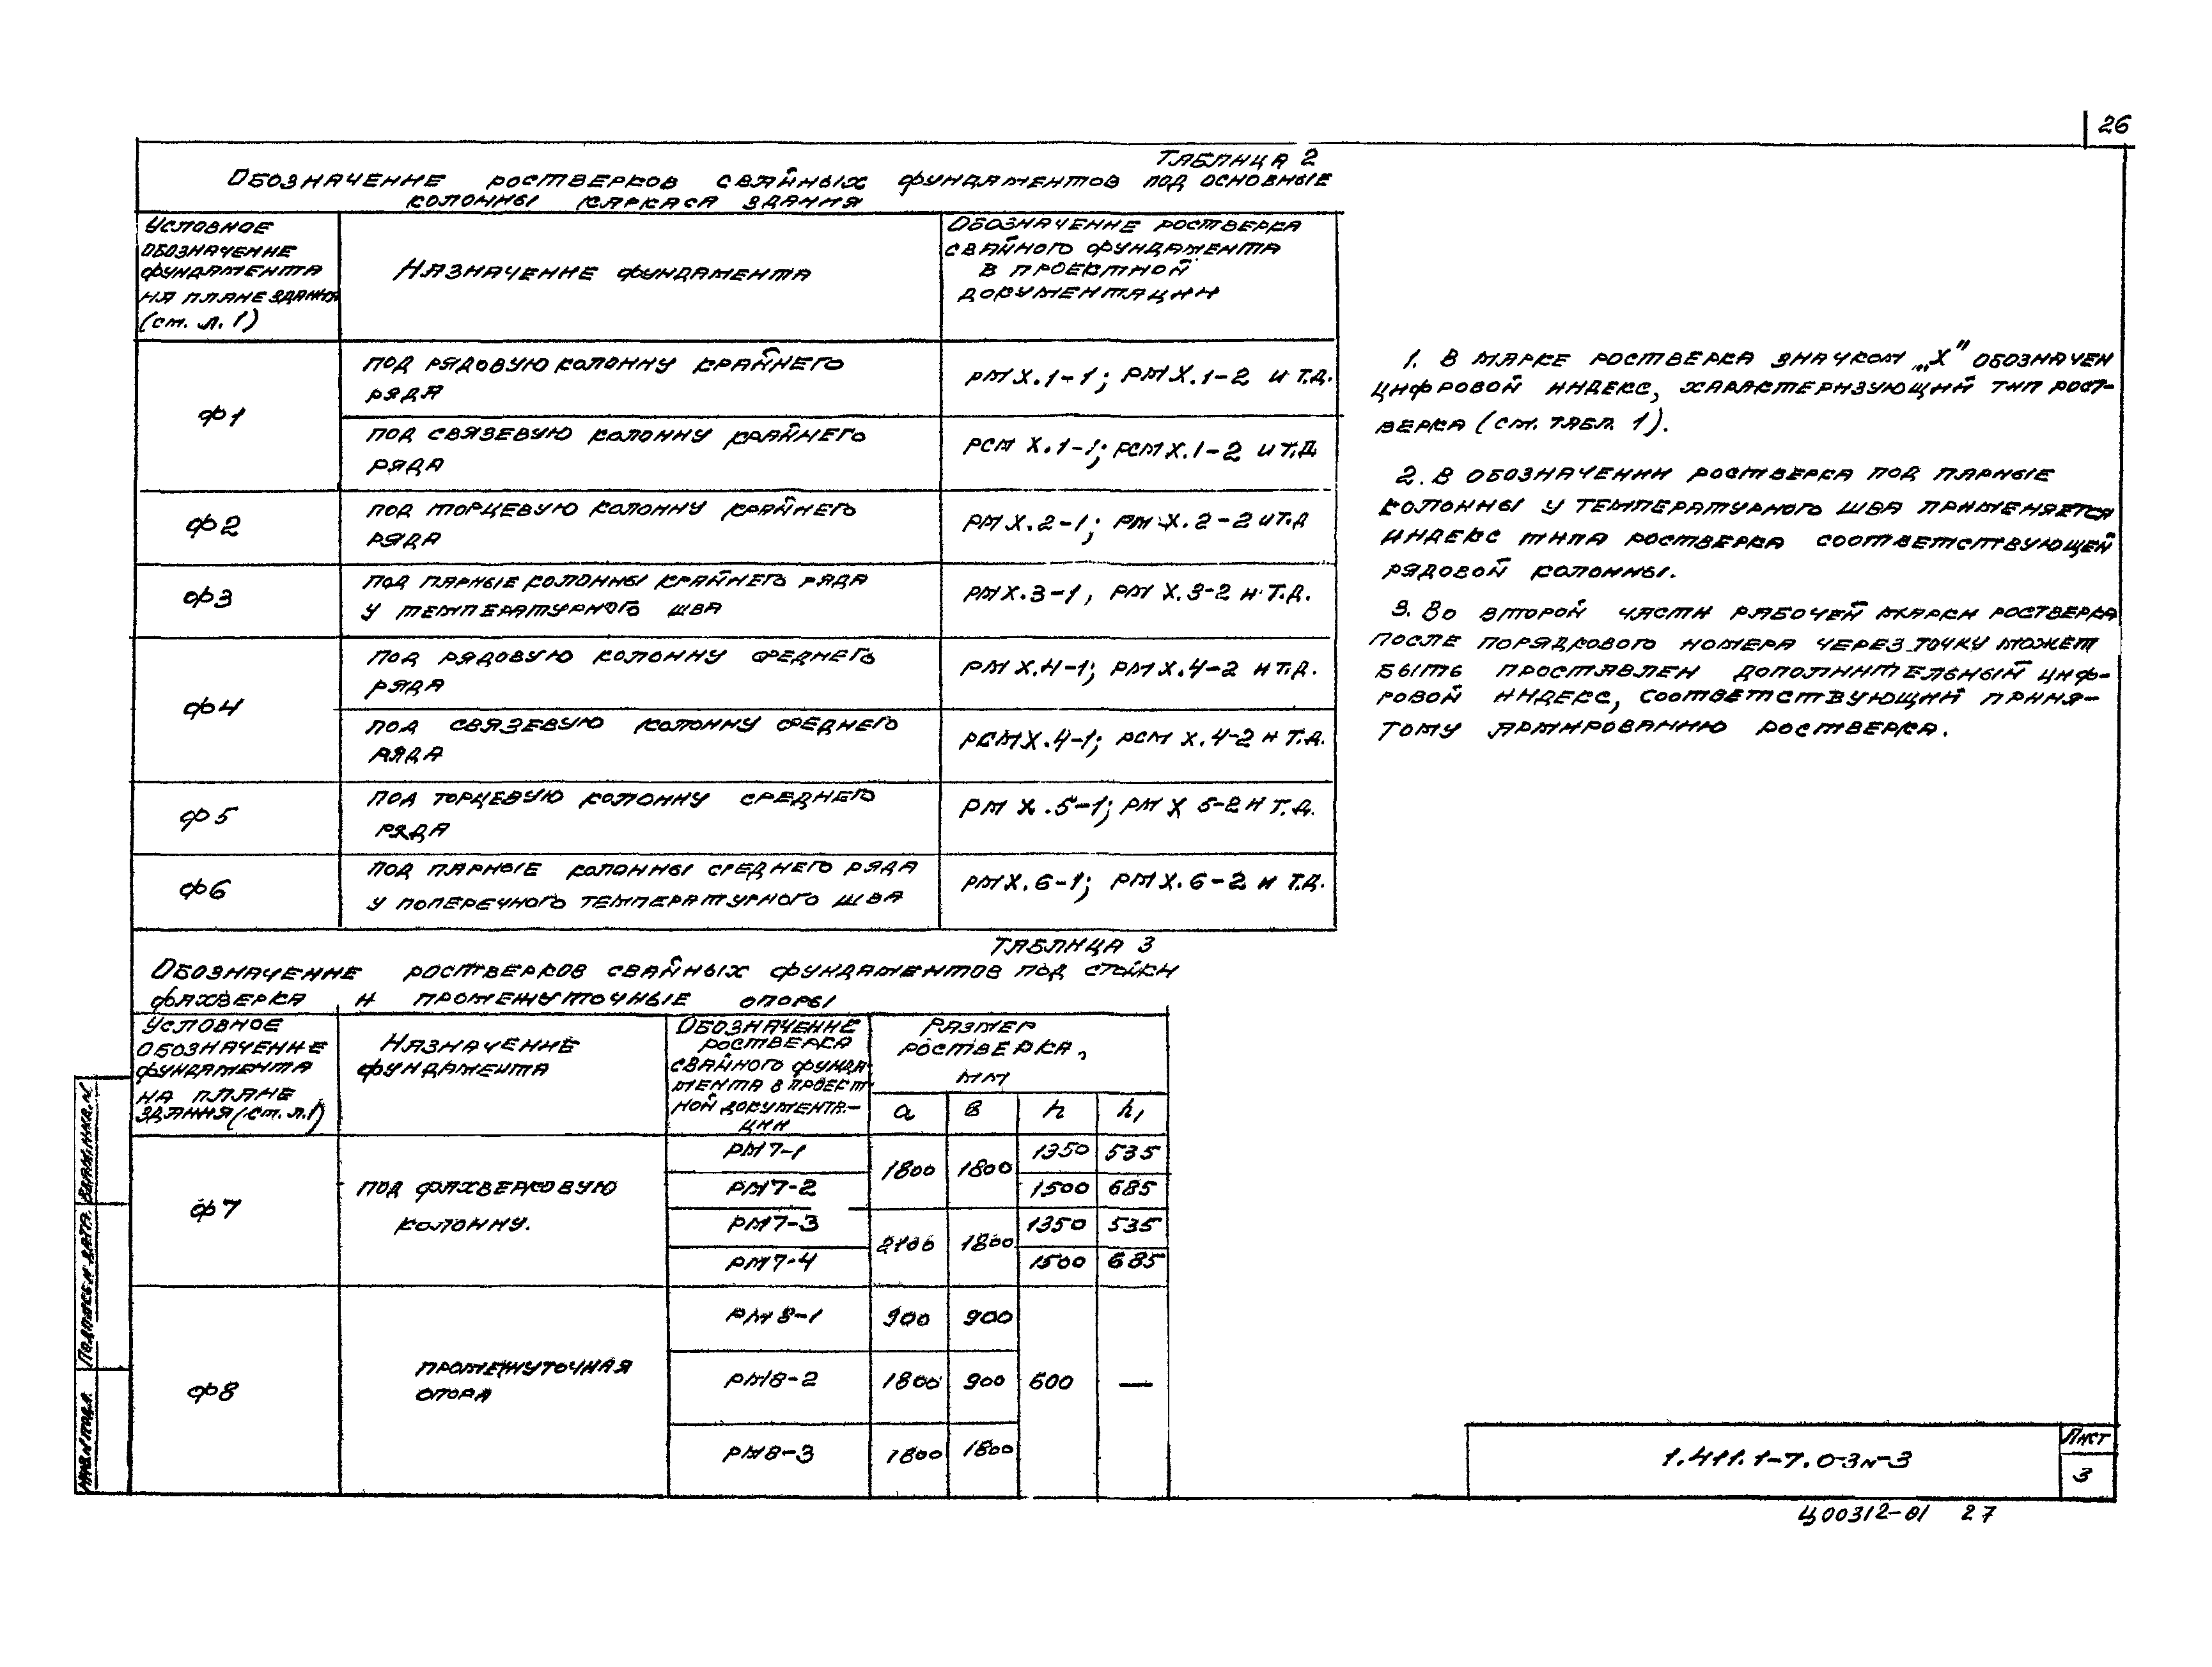 26
Таблица 2
Обозначение ростверков свайных фундаментов под основные
колонны каркаса здания
Условное
обозначение
фундамента
на плане здания
(см. л. 1)
Назначение фундамента
Обозначение ростверка
свайного фундамента
в проектной
документации
Ф1
под рядовую колонну крайнего
ряда
РМ Х.1-1; РМ Х.1-2 и т.д.
под связевую колонну крайнего
ряда
РСМ Х.1-1; РСМ Х.1-2 и т.д
Ф2
под торцевую колонну крайнего
ряда
РМ Х.2-1; РМ Х.2-2 и т.д
Ф3
под парные колонны крайнего ряда
у температурного шва
РМ Х.3-1, РМ Х.3-2 и т.д.
Ф4
под рядовую колонну среднего
ряда
РМ Х.4-1; РМ Х.4-2 и т.д.
под связевую колонну среднего
ряда
РСМ Х.4-1; РСМ Х.4-2 и т.д.
Ф5
под торцевую колонну среднего
ряда
РМ Х.5-1; РМ Х 5-2 и т.д.
Ф6
под парные колонны среднего ряда
у поперечного температурного шва
РМ Х.6-1; РМ Х.6-2 и т.д.
1. В марке ростверка значком „Х" обозначен
цифровой индекс, характеризующий тип рост-
верка (см. табл. 1).
2. В обозначении ростверка под парные
колонны у температурного шва применяется
индекс типа ростверка соответствующей
рядовой колонны.
3. Во второй части рабочей марки ростверка
после порядкового номера через точку может
быть проставлен дополнительный циф-
ровой индекс, соответствующий приня-
тому армированию ростверка.
Таблица 3
Обозначение ростверков свайных фундаментов под стойки
фахверка и промежуточные опоры
Условное
обозначение
фундамента
на плане
здания (см. л.1)
Назначение
фундамента
Обозначение
ростверка
свайного фунда-
мента в проект-
ной документа-
ции
Размер
ростверка,
мм
a
в
h
h1
Ф7
под фахверковую
колонну.
РМ7-1
1800
1800
1350
535
РМ7-2
1500
685
РМ7-3
2100
1800
1350
535
РМ7-4
1500
685
Ф8
промежуточная
опора
РМ8-1
900
900
РМ8-2
1800
900
600
—
РМ8-3
1800
1800
Взам. инв. N
Подпись и дата
Инв. N подл.
1.411.1-7.0-3и-3
Лист
3
Ц00312-01 27